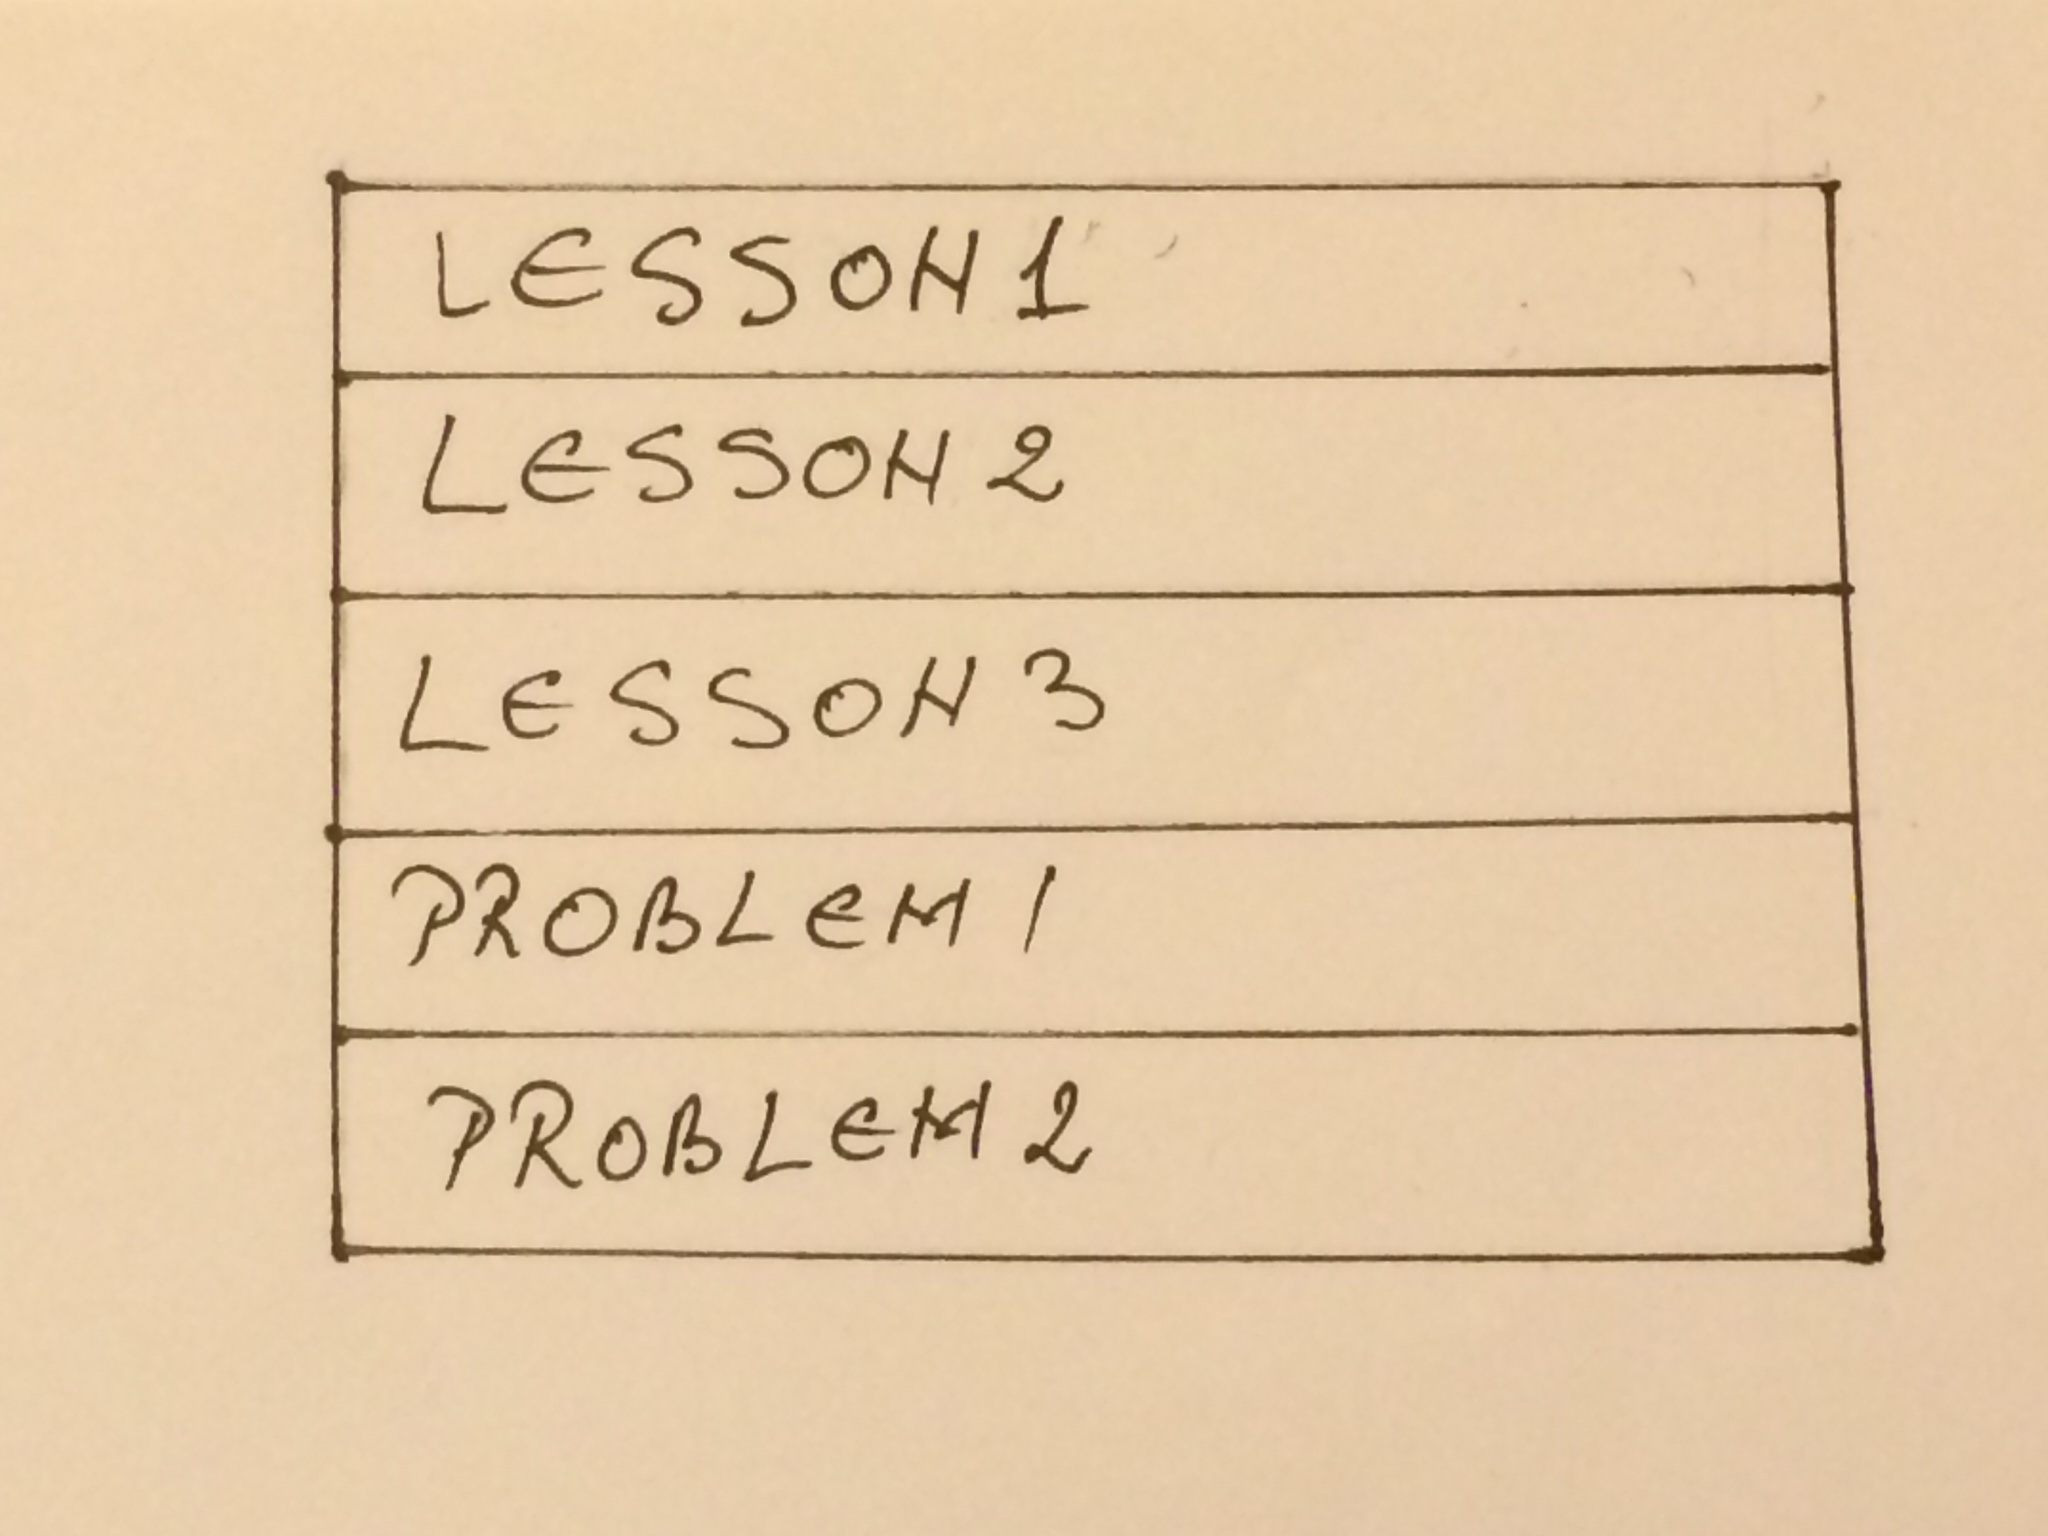 LESSON 1
LESSON 2
LESSON 3
PROBLEM 1
PROBLEM 2